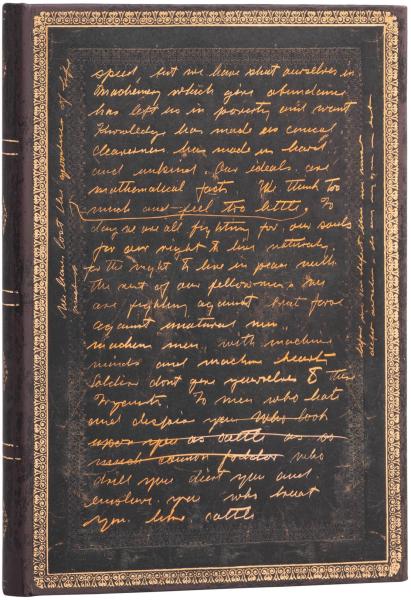 speed, but we have shut ourselves in
Machinery which gives abundance
has left us in poverty and want
Knowledge has made us cynical
cleverness has made us hard
and unkind. Our ideals are
mathematical facts We think too
much and feel too little. To
day we are all fighting for our souls
for our right to live naturaly,
for the right to live in peace with
the rest of our fellowmen
are fighting against brut force
against unatural men,
machine men, with machine
minds and machine heart
Soldiers dont give yourselves to these
Tryants. To men who hate
and despise you who look
upon you as cattle as so
much cannon fodder who
drill you diet you and
enslave you who treat
you like cattle
We have lost the of life